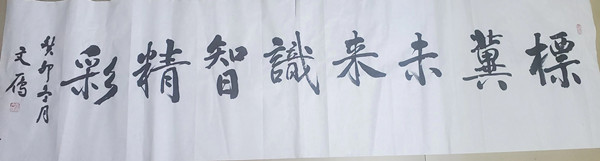 標冀未来識智精彩
癸卯冬月
文